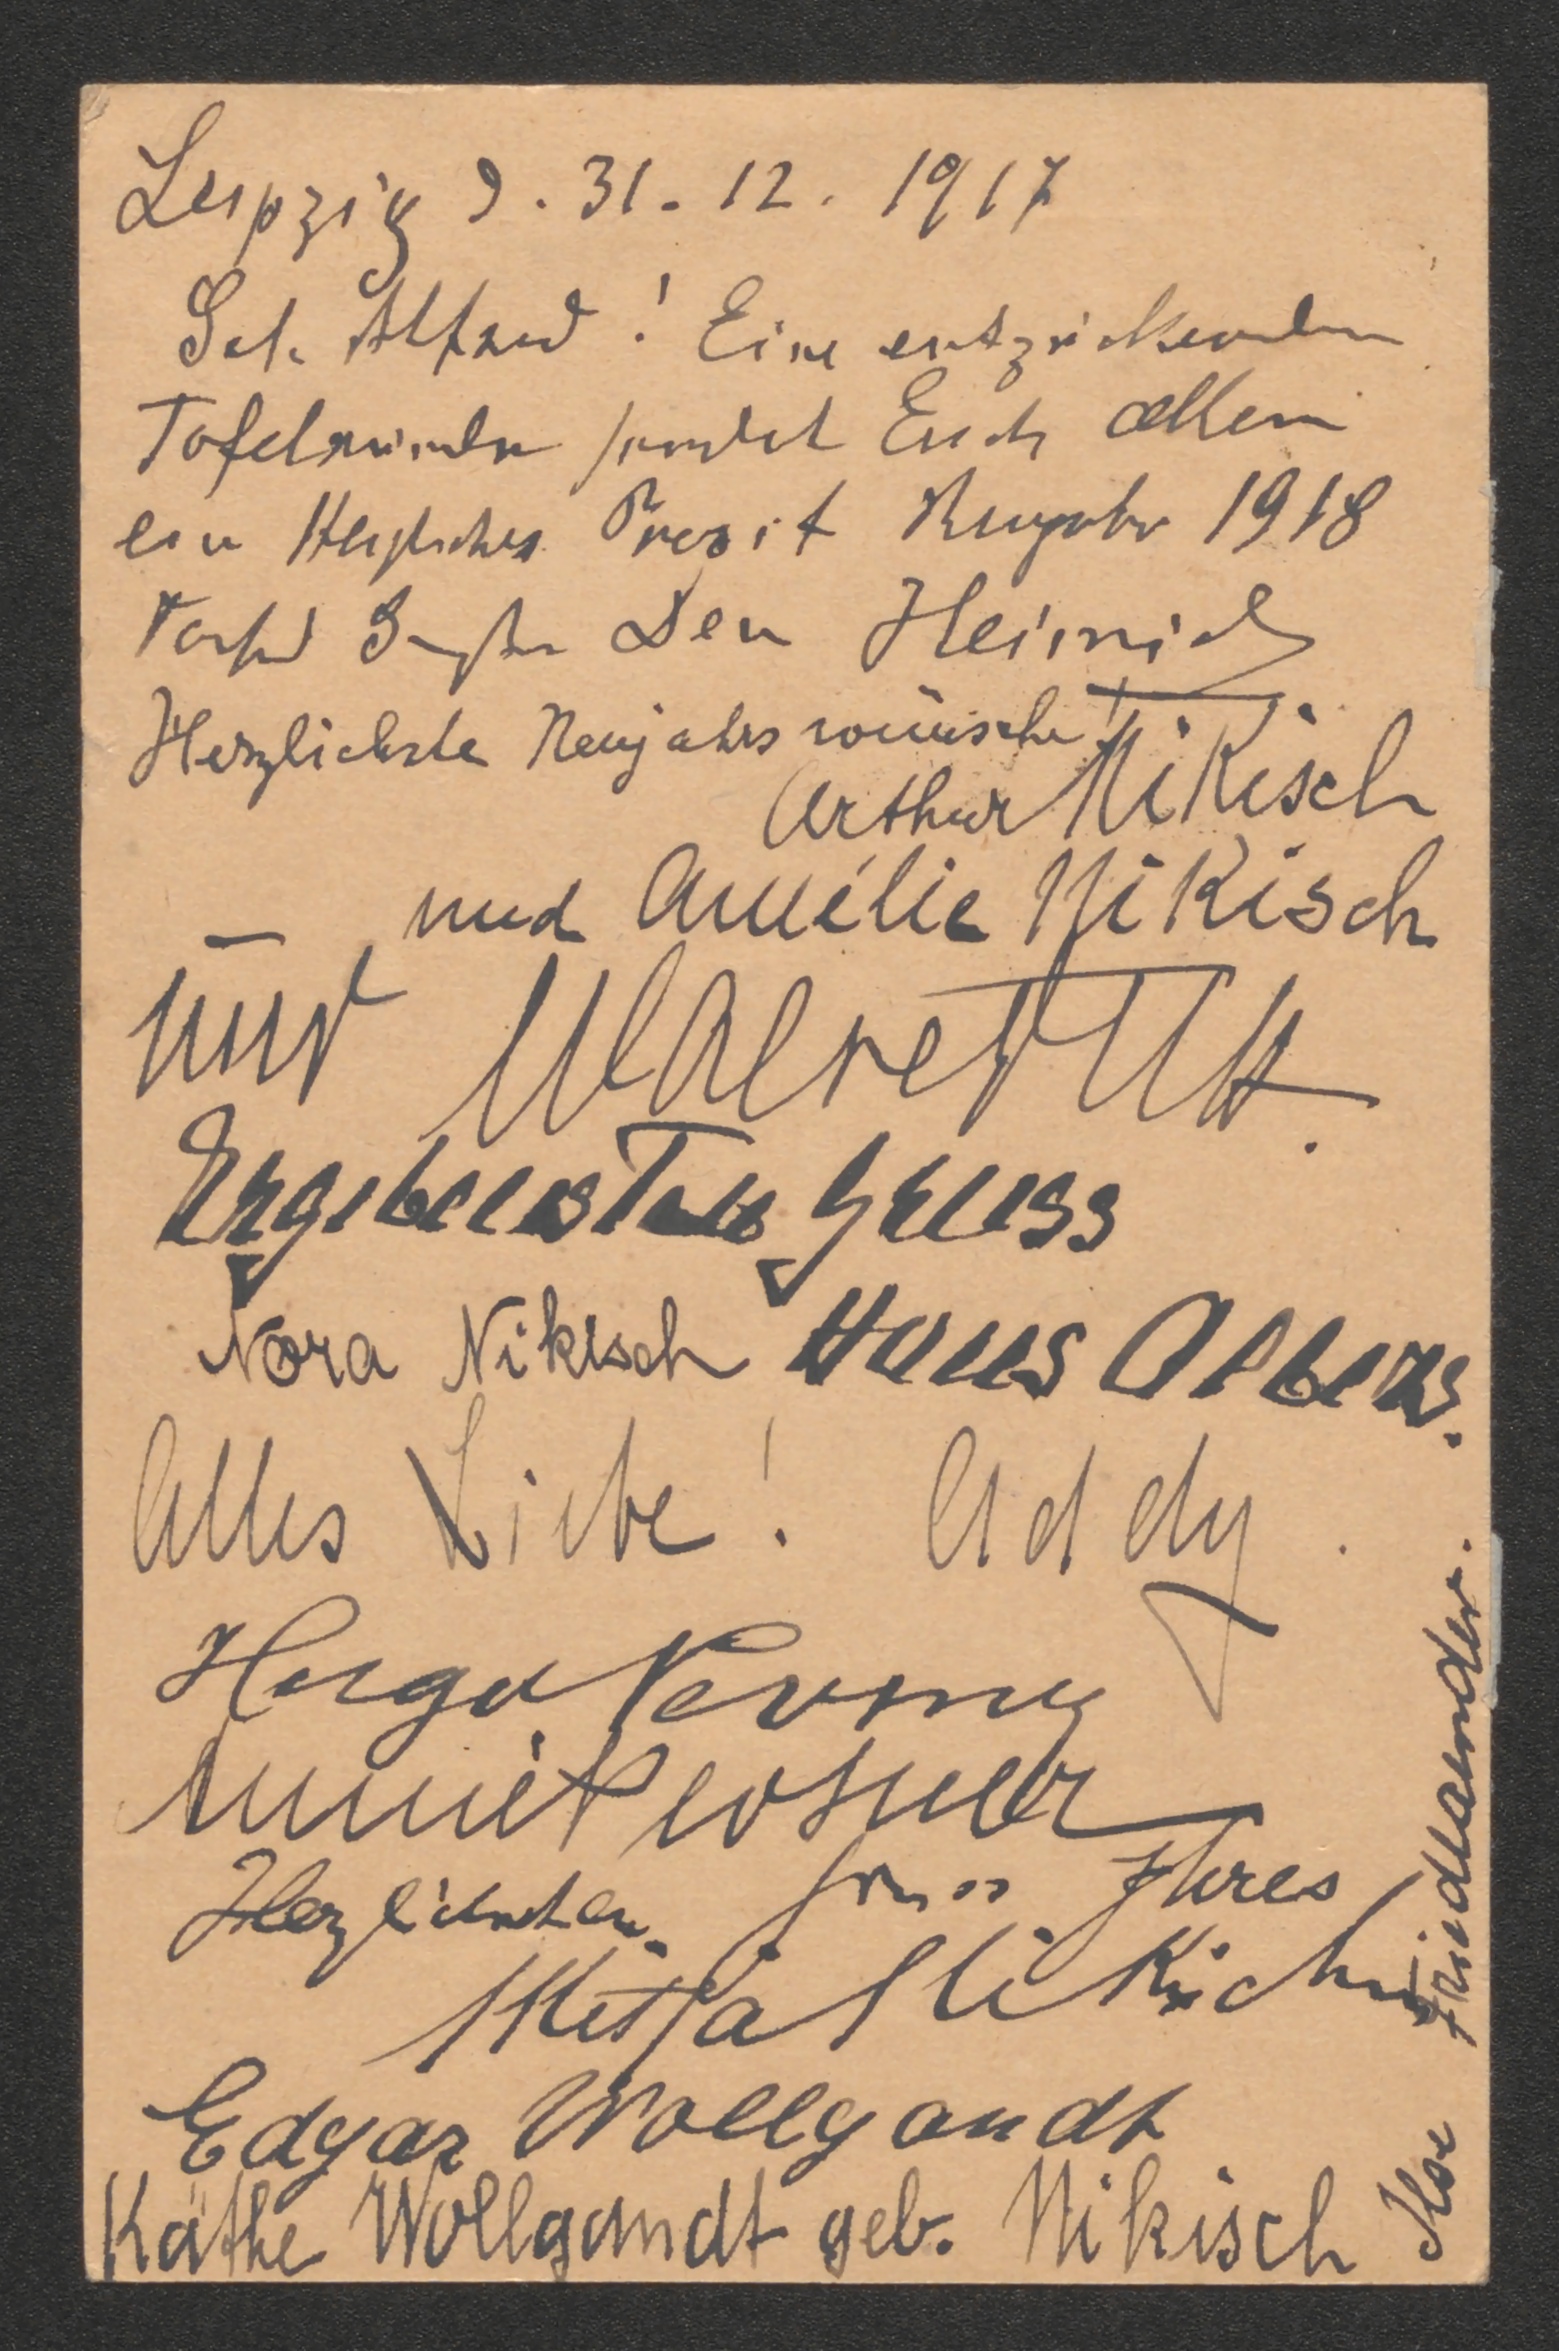 Leipzig d. 31. 12. 1917
Geh. Alfred! Eine entzückenden
Tafelrunde sendet Euch allen
ein Herzliches Prosit Neujahr 1918
Dein Heinrich
Herzlichste Neujahrswünsche!
Arthur Nikisch
und Amélie Nikisch
und
Ergebensten Gruss
Nora Nikisch Hans Albers.
Alles Liebe! Addy.
Herzlichsten Gruss Ihres
Mitja Nikisch
Edgar Wollgandt
Käthe Wollgandt geb. Nikisch
Ilse Friedlaender.